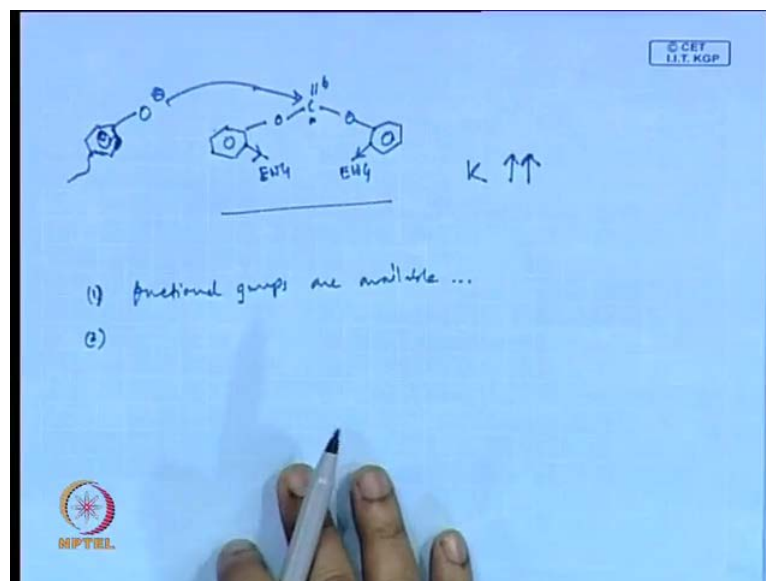 © CET
I.I.T. KGP
O ⊖
O C O
EWG EWG
K ↑↑
(1) functional groups are available ...
(2)
NPTEL